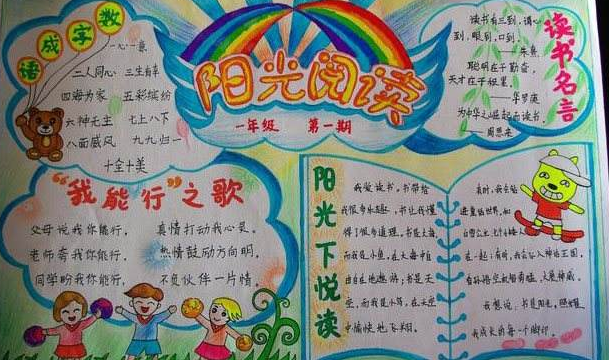 阳光阅读
一年级 第一期
数字成语
一心一意
二人同心 三生有幸
四海为家 五彩缤纷
六神无主 七上八下
八面威风 九九归一
十全十美
读书名言
读书有三到，谓心
到，眼到，口到。
——朱熹
聪明在于勤奋，
天才在于积累。
——华罗庚
为中华之崛起而读书。
——周恩来
“我能行”之歌
父母说我你能行， 真情打动我心灵。
老师夸我你能行， 热情鼓励方向明。
同学盼我你能行， 不负伙伴一片情。
阳光下悦读
我爱读书，书带给
我很多乐趣，书让我懂
得了很多道理。书是大海，
而我是小鱼，在大海中自
由自在地遨游；书是天
空，而我是小鸟，在天空
中愉快地飞翔。
有时，我会钻
进童话世界，和
白雪公主、七个小矮人
在一起；有时，我会
我想说：书是阳光，照耀着
我成长的每一个脚印。